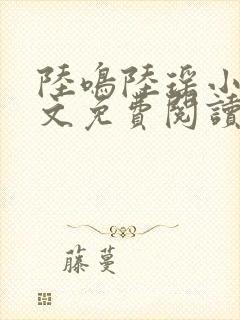 陸鳴陸瑶小
文免費閱讀
藤蔓